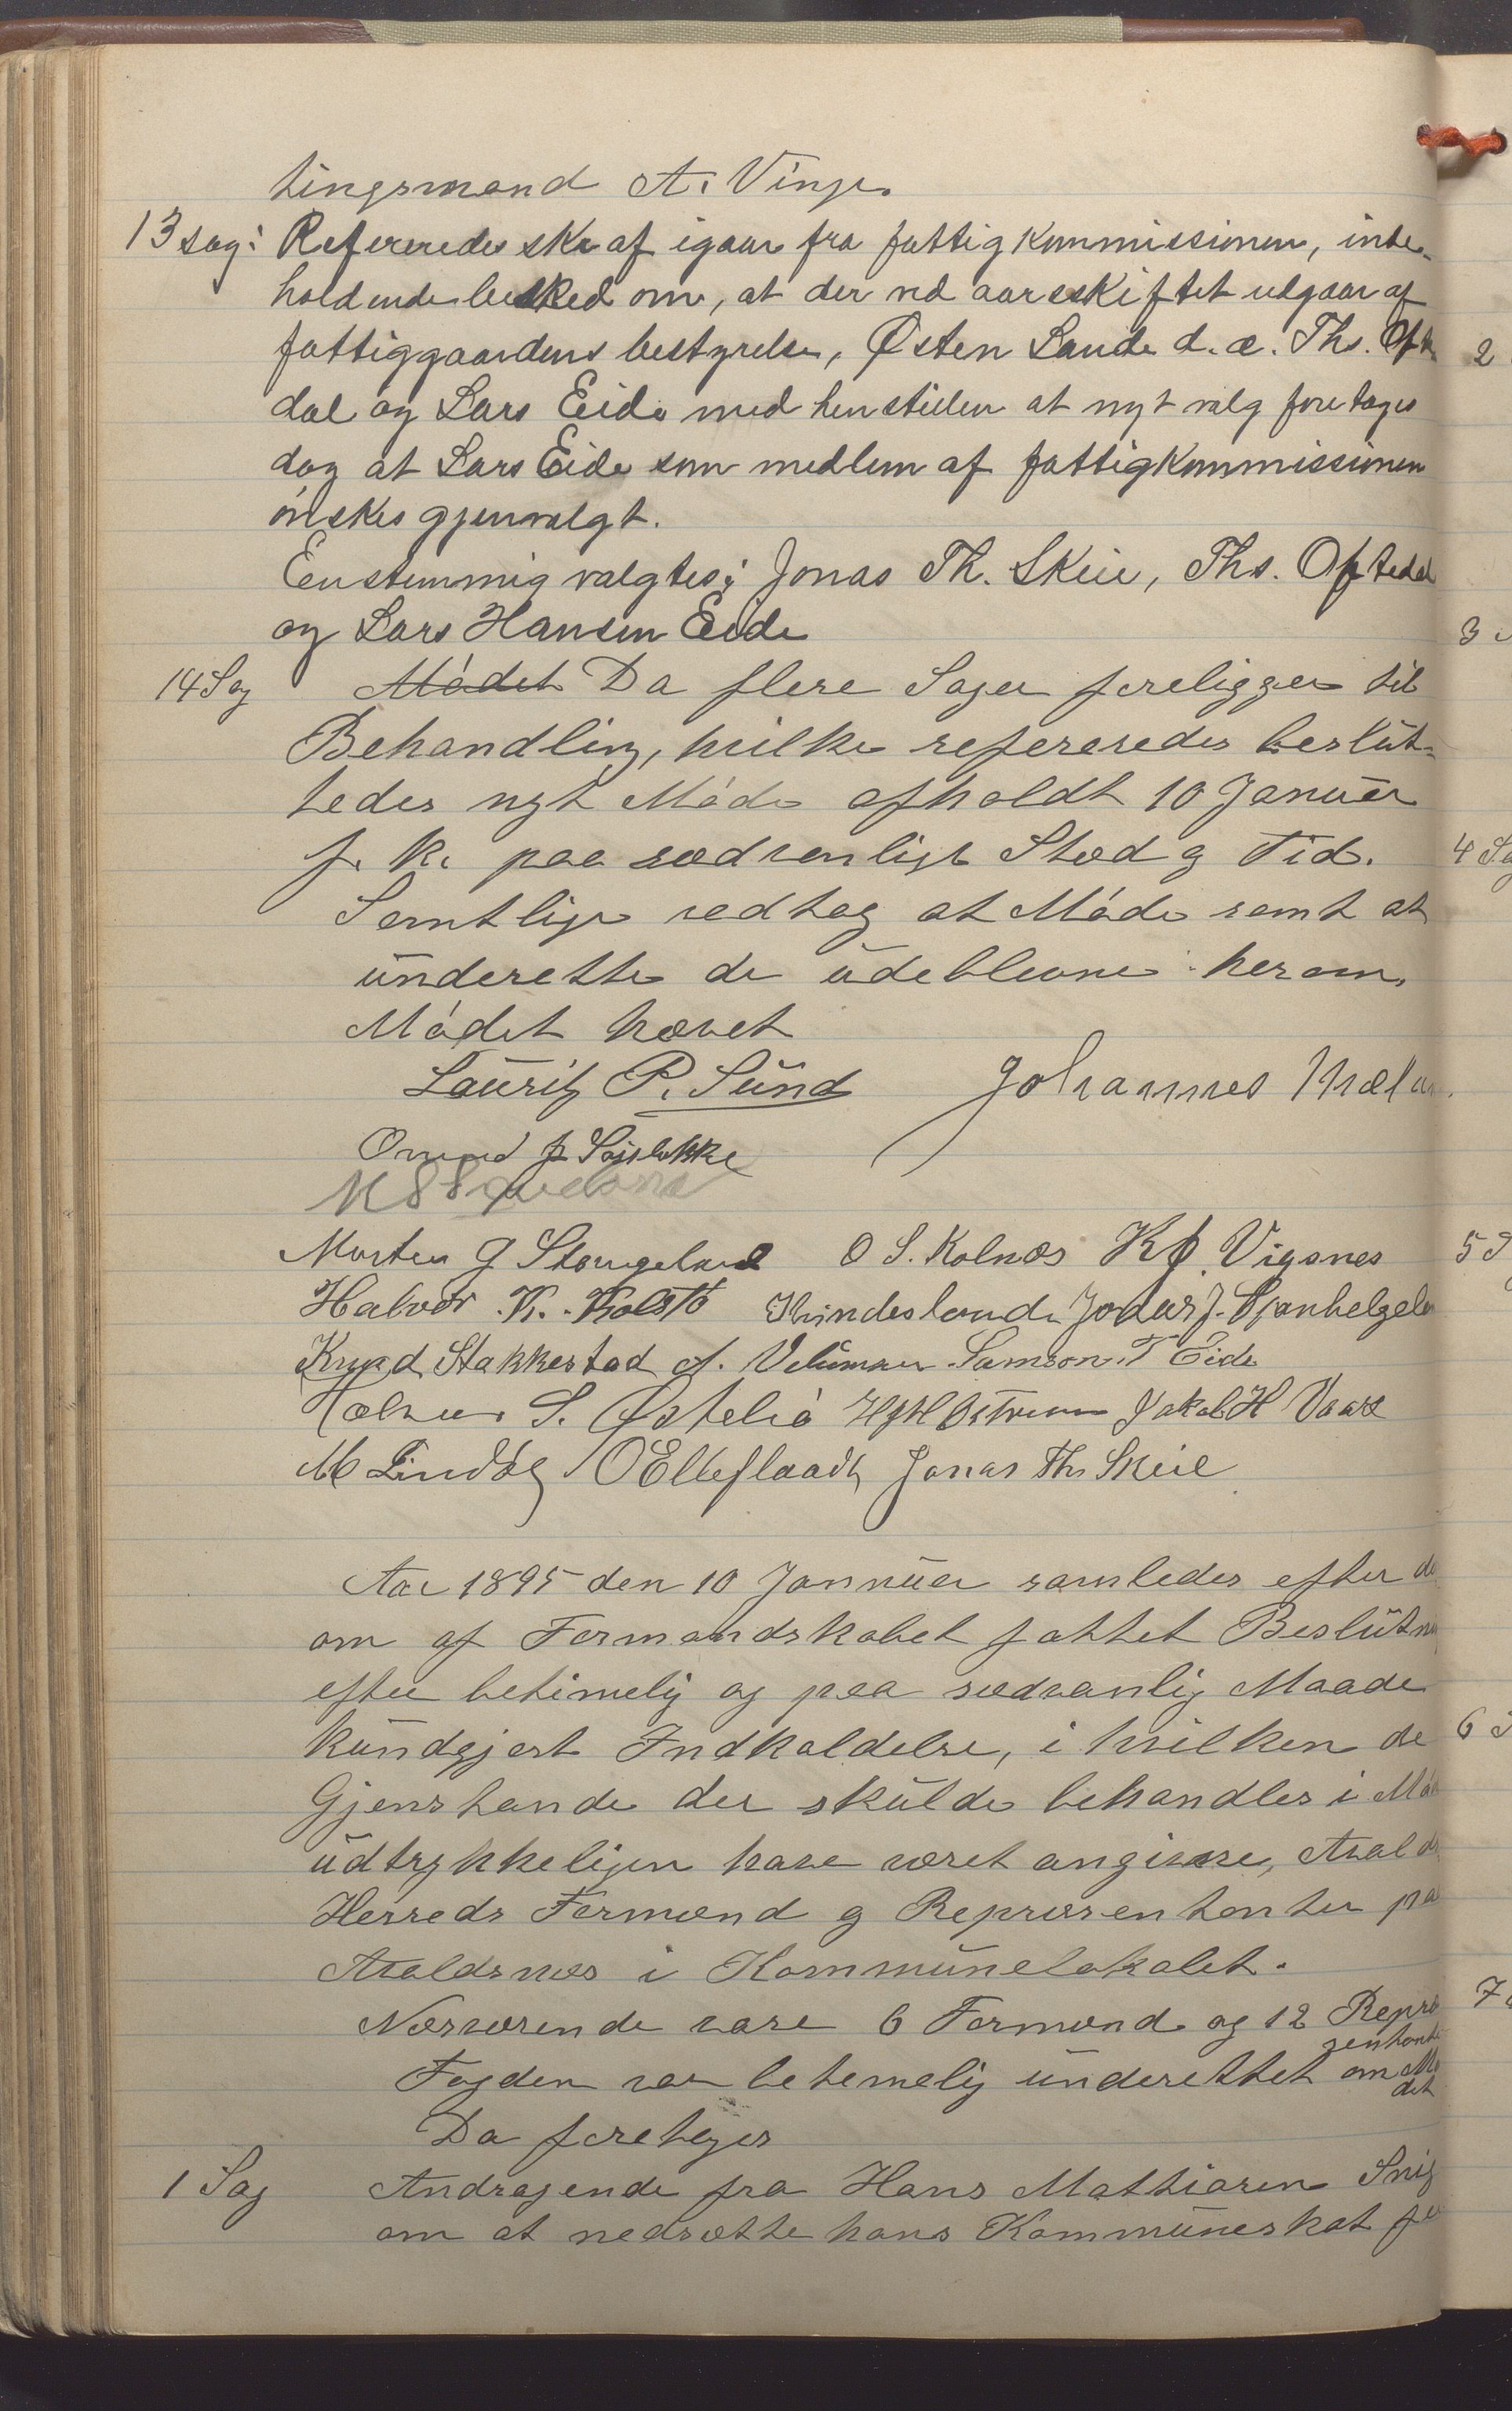 tingsmand A. Vinje.
13 sag: Refereredes skr af igaar fra fattigkommissionen, inde-
holdende besked om, at der ved aarsskiftet udgaar af
fattiggaardens bestyrelse, Østen Lande d. æ. Ths. Ofte
dal og Lars Eide med henstillen at nyt valg foretages
dog at Lars Eide som medlem af fattigkommissionen
ønskes gjenvalgt.
Eenstemmig valgtes: Jonas Th. Skeie, Ths. Oftedal
og Lars Hansen Eide
14 Sag Mødet Da flere Sager foreligger til
Behandling, hvilke refereredes beslut-
tedes nyt Møde afholdt 10 Januar
f. k. paa sædvanligt Sted og Tid.
Samtlige vedtog at Møde samt at
underette de udeblevne herom.
Mødet hævet
Lauritz P. Sund Johannes
Morten G Stangeland O S. Kolnæs K Vigsnes
Halvor K. Kolstø
Knud Stakkestad A. Velument Samson T Eide
S. Østeliø Jakob H Vaare
M Lindøe O Elleflaadt Jonas Th Skeie
Aar 1895 den 10 Januar samledes efter de
om af Formandskabet fattet Beslutn
efter betimelig og paa sædvanlig Maade
kundgjort Indkaldelse, i hvilken de
Gjenstande der skulde behandles i Mø
udtrykkeligen have været angivne, Avalds
Herreds Formænd og Repræsentanter paa
Avaldsnæs i Kommunelokalet.
Nærværende vare 6 Formænd og 12 Repræ
sentante
Fogden var betimelig underettet om Mø
det
Da foretoges
1 Sag Andragende fra Hans Mathiasen Snig
om at nedsætte hans Kommuneskat for
2
3
4 Sa
5 S
6 S
7